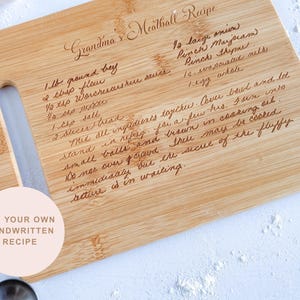 Grandma's Meatball Recipe
1 lb ground beef
2 tbsp flour
½ tsp Worcestershire sauce
½ tsp pepper
1 tsp salt
2 slices bread
½ large onion
Pinch Marjoram
Pinch Thyme
½ cup milk
1 egg whole
Mix all ingredients together. Cover bowl and let
stand in fridge for a few hrs. Turn into
small balls and brown in cooking oil.
Do not over
immediately but the secret of the fluffy
texture is in waiting.
YOUR OWN
NDWRITTEN
RECIPE